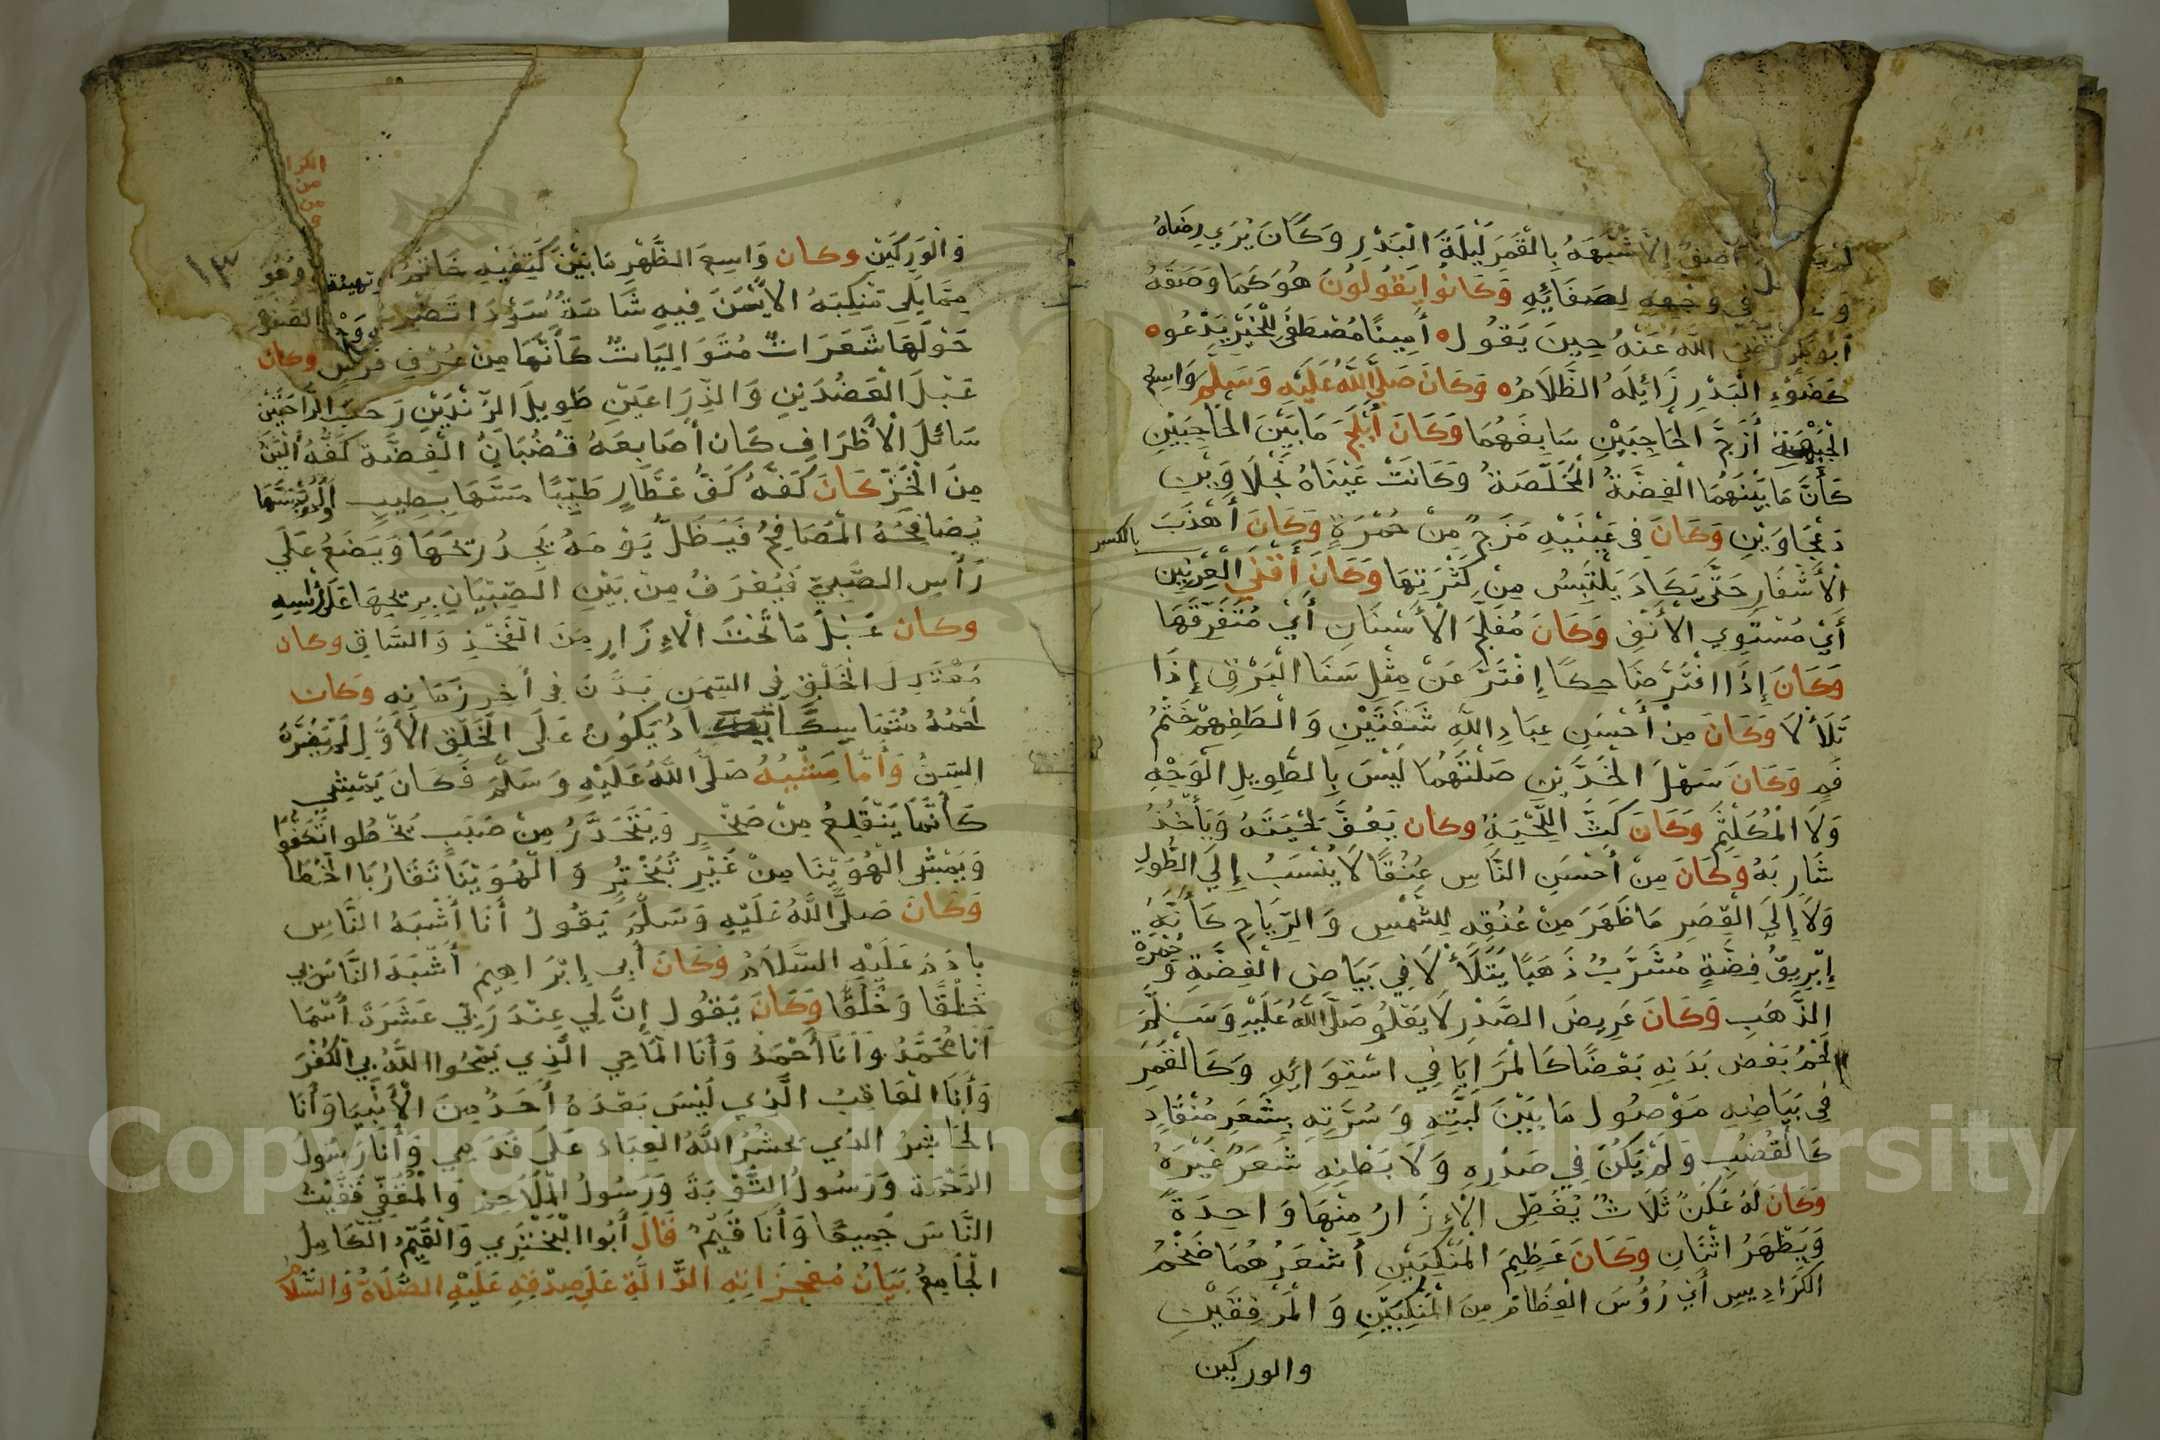 إلا شبهه بالقمر ليلة البدر وكان يرى رضاه
في وجهه لصفائه وكانوا يقولون هو كما وصفه
أبو بكر رضي الله عنه حين يقول أمينا مصطفى للخير يدعو
كضوء البدر زائله الظلام وكان صلى الله عليه وسلم واسع
الجبهة أزج الحاجبين سابغهما وكان أبلج ما بين الحاجبين
كأن ما بينهما الفضة المخلصة وكانت عيناه نجلاوين
دعجاوين وكان في عينيه مزج من حمرة وكان أهدب
بالكسر
الأشفار حتى يكاد يلتبس من كثرتها وكان أقنى العرنين
أي مستوي الأنف وكان مفلج الأسنان أي متفرقها
وكان إذا افتر ضاحكا افتر عن مثل سنا البرق إذا
تلألأ وكان من أحسن عباد الله شفتين وألطفهم ختم
فم وكان سهل الخدين صلتهما ليس بالطويل الوجه
ولا المكلثم وكان كث اللحية وكان يعف لحيته ويأخذ
شاربه وكان من أحسن الناس عنقا لا ينسب إلى الطول
ولا إلى القصر ما ظهر من عنقه للشمس والرياح كأنه
إبريق فضة مشرب ذهبا يتلألأ في بياض الفضة وحمرة
الذهب وكان عريض الصدر لا يعلو صلى الله عليه وسلم
لحم بعض بدنه بعضا كالمرايا في استوائه وكالقمر
في بياضه موصول ما بين لبته وسرته بشعر منقاد
كالقضيب ولم يكن في صدره ولا بطنه شعر غيره
وكان له عكن ثلاث يغطي الإزار منها واحدة
ويظهر اثنان وكان عظيم المنكبين أشعرهما ضخم
الكراديس أي رؤس العظام من المنكبين والمرفقين
والوركين
١٣
والوركين وكان واسع الظهر ما بين كتفيه خاتم
مما يلي منكبه الأيمن فيه شامة سوداء تضرب
حولها شعرات متواليات كأنها من عرف فرس وكان
عبل العضدين والذراعين طويل الزندين رحب الراحتين
سائل الأطراف كان أصابعه قضبان الفضة كفه ألين
من الخز كان كفه كف عطار طيبا مسها بطيب أو لم يمسها
يصافحه المصافح فيظل يومه يجد ريحها ويضع على
رأس الصبي فيعرف من بين الصبيان بريحها على رأسه
وكان عبل ما تحت الإزار من الفخذ والساق وكان
معتدل الخلق في السمن بدن في أخر زمانه وكان
لحمه متماسكا يكاد يكون على الخلق الأول لم يضره
السن وأما مشيه صلى الله عليه وسلم فكان يمشي
كأنما ينقلع من صخر ويتحدر من صبب يخطو تكفؤا
ويمشي الهوينا من غير تبختر والهوينا تقارب الخطا
وكان صلى الله عليه وسلم يقول أنا أشبه الناس
بادم عليه السلام وكان أبي إبراهيم أشبه الناس بي
خلقا وخلقا وكان يقول إن لي عند ربي عشرة أسما
أنا محمد وأنا أحمد وأنا الماحي الذي يمحوا الله بي الكفر
وأنا العاقب الذي ليس بعده أحد من الأنبيا وأنا
الحاشر الذي يحشر الله العباد على قدمي وأنا رسول
الرحمة ورسول التوبة ورسول الملاحم والمقفي قفيت
الناس جميعا وأنا قيم قال أبوا البختري والقيم الكامل
الجامع بيان معجزاته الدالة على صدقه عليه الصلاة والسلام
Copyright © King Saud University